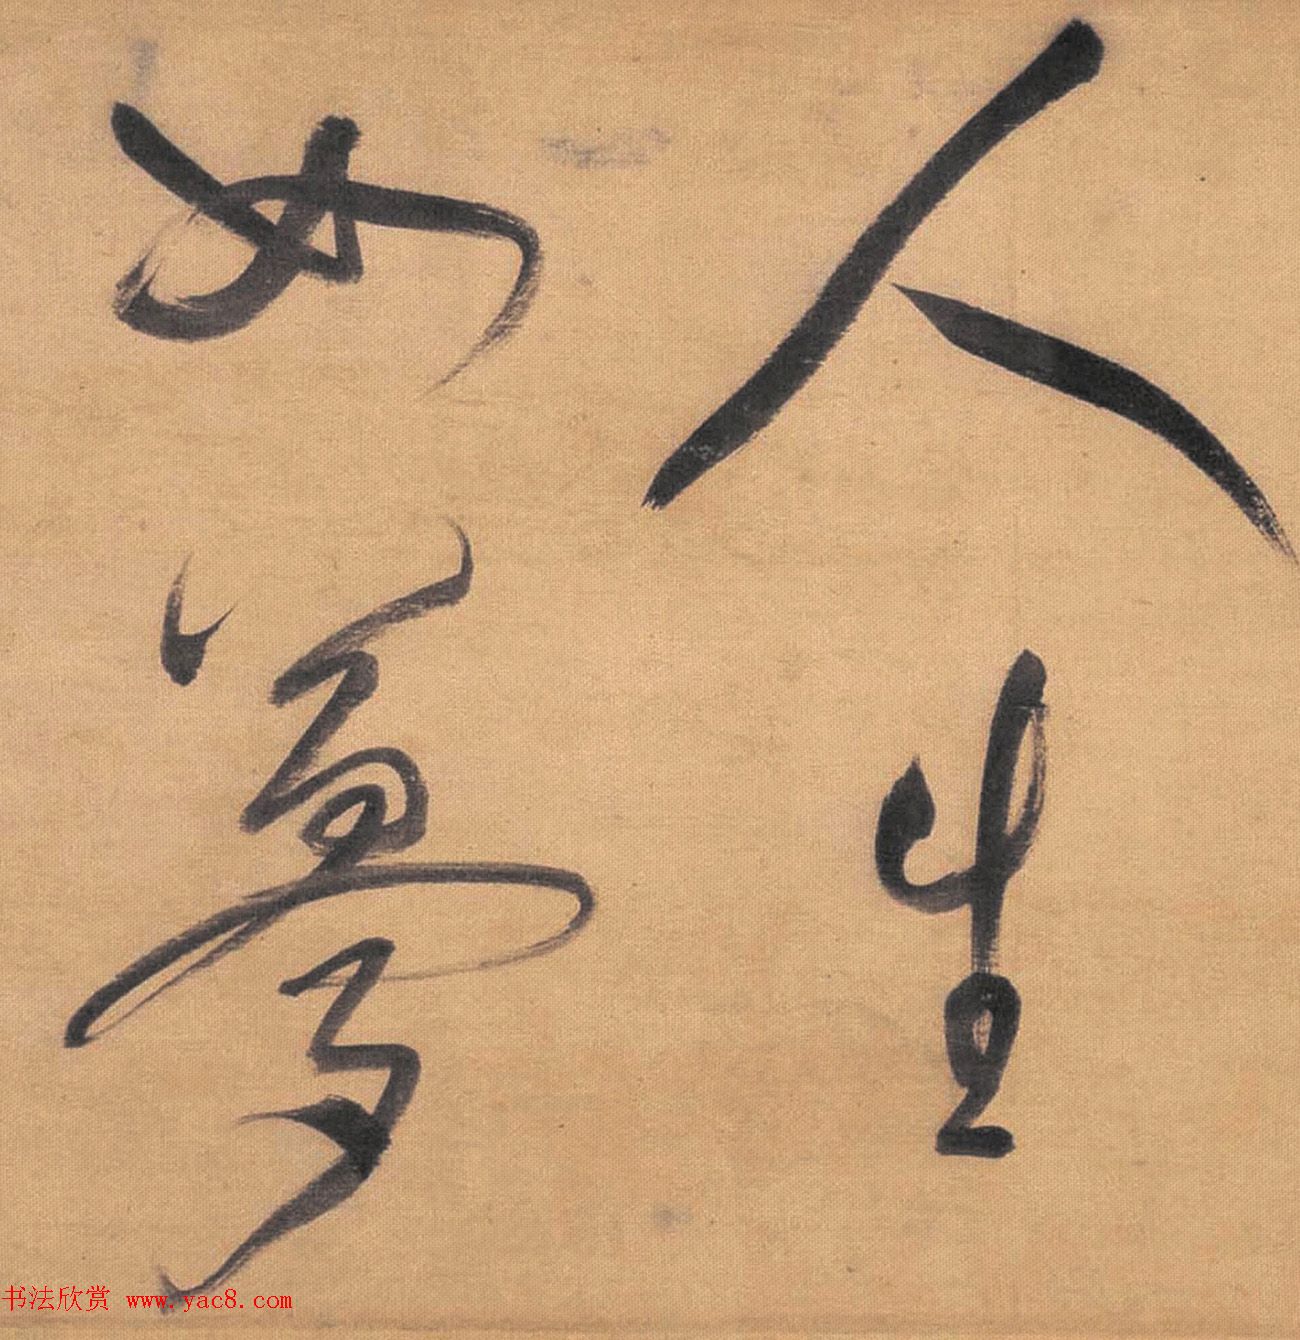 人生
如夢
书法欣赏 www.yac8.com